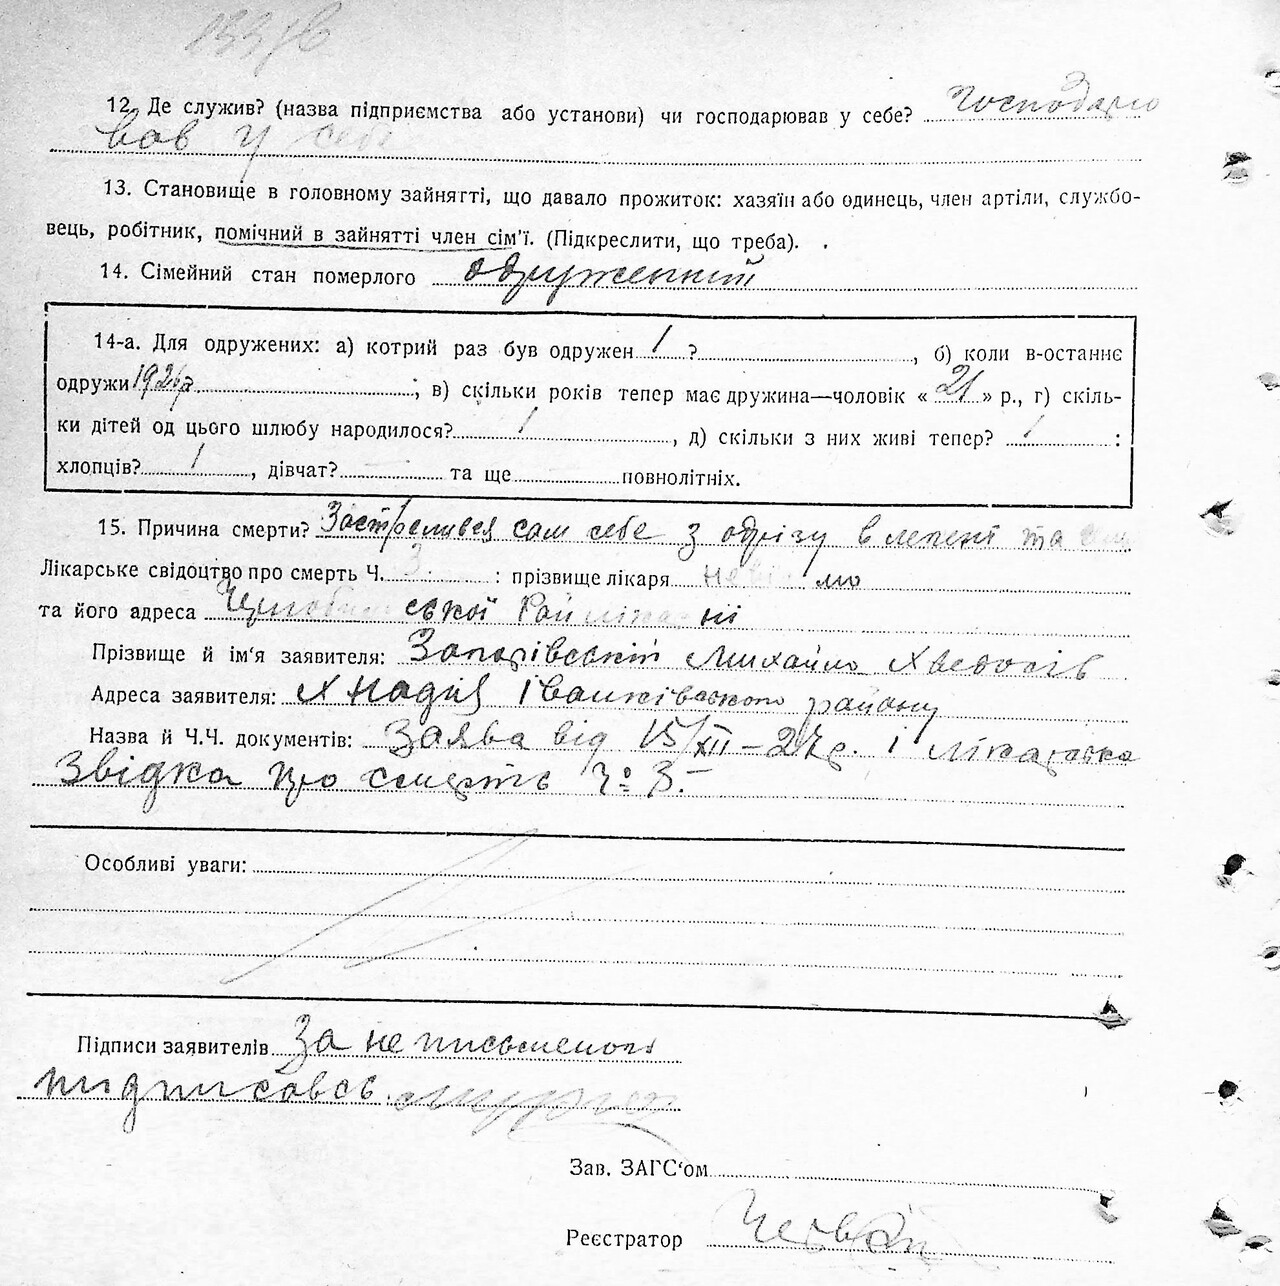 12. Де служив? (назва підприємства або установи) чи господарював у себе? Господарю
вав у себе
13. Становище в головному зайнятті, що давало прожиток: хазяїн або одинець, член артіли, службо-
вець, робітник, помічний в зайнятті член сім'ї. (Підкреслити, що треба).
14. Сімейний стан померлого одружений
14-а. Для одружених: а) котрий раз був одружен 1 ?, б) коли в-останнє
одружи 1926 р; в) скільки років тепер має дружина—чоловік « 21 » р., г) скіль-
ки дітей од цього шлюбу народилося? 1, д) скільки з них живі тепер? 1 :
хлопців? 1, дівчат? — та ще повнолітніх.
15. Причина смерти? Застрелився сам себе з обрізу в та
Лікарське свідоцтво про смерть Ч. 3 : прізвище лікаря
та його адреса
Прізвище й ім'я заявителя: Михайло
Адреса заявителя: Іванківського району
Назва й Ч.Ч. документів: Заява від 15/XII–27 р. і лікарська
Звідка про смерть Ч: 3.
Особливі уваги:
Підписи заявителів За неписьменого
підписавсь
Зав. ЗАГС'ом
Реєстратор